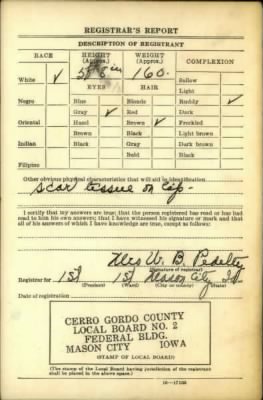 REGISTRAR'S REPORT
DESCRIPTION OF REGISTRANT
RACE HEIGHT (Approx.) WEIGHT (Approx.) COMPLEXION
White ✓ 5 ft 8 in 160. Sallow
EYES HAIR Light
Negro Blue Blonde Ruddy ✓
Gray ✓ Red Dark
Oriental Hazel Brown ✓ Freckled
Brown Black Light brown
Indian Black Gray Dark brown
Bald Black
Filipino
Other obvious physical characteristics that will aid in identification
Scar tissue on lip.
I certify that my answers are true; that the person registered has read or has had
read to him his own answers; that I have witnessed his signature or mark and that
all of his answers of which I have knowledge are true, except as follows:
Mrs W. B. Pedelty
(Signature of registrar)
Registrar for 1st 1st Mason City Ia
(Precinct) (Ward) (City or county) (State)
Date of registration
CERRO GORDO COUNTY
LOCAL BOARD NO. 2
FEDERAL BLDG.
MASON CITY IOWA
(STAMP OF LOCAL BOARD)
(The stamp of the Local Board having jurisdiction of the registrant
shall be placed in the above space.)